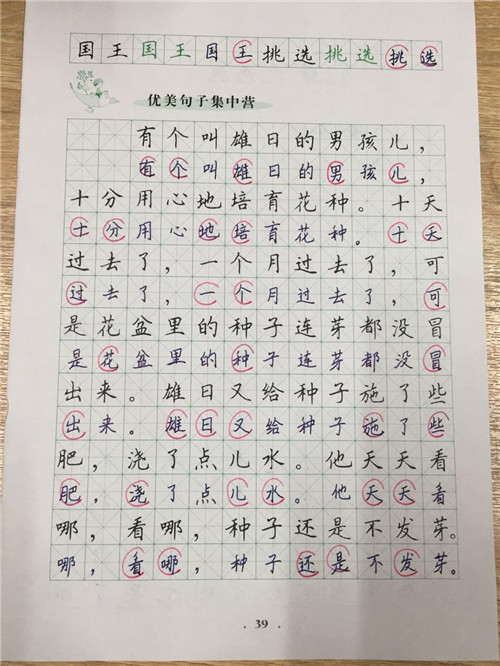 国王国王国王挑选挑选挑选
优美句子集中营
有个叫雄日的男孩儿，
有个叫雄日的男孩儿，
十分用心地培育花种。十天
十分用心地培育花种。十天
过去了，一个月过去了，可
过去了，一个月过去了，可
是花盆里的种子连芽都没冒
是花盆里的种子连芽都没冒
出来。雄日又给种子施了些
出来。雄日又给种子施了些
肥，浇了点儿水。他天天看
肥，浇了点儿水。他天天看
哪，看哪，种子还是不发芽。
哪，看哪，种子还是不发芽。
· 39 ·